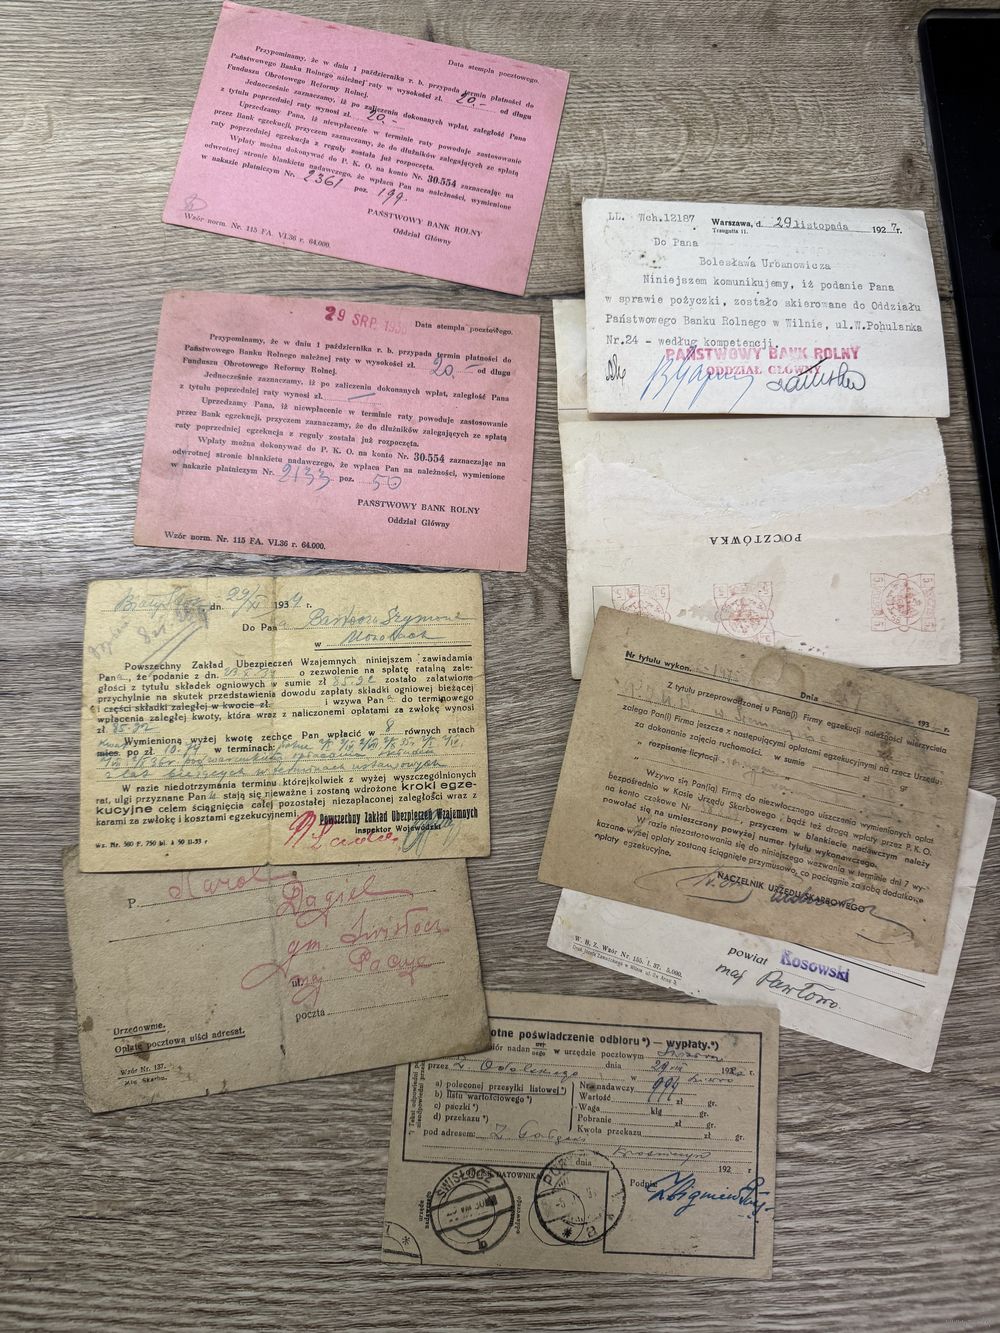 Data stempla pocztowego.
Przypominamy, że w dniu 1 października r. b. przypada termin płatności do
Państwowego Banku Rolnego należnej raty w wysokości zł. 20.- od długu
Funduszu Obrotowego Reformy Rolnej.
Jednocześnie zaznaczamy, iż po zaliczeniu dokonanych wpłat, zaległość Pana
z tytułu poprzedniej raty wynosi zł. 20.-
Uprzedzamy Pana, iż niewpłacenie w terminie raty powoduje zastosowanie
przez Bank egzekucji, przyczem zaznaczamy, że do dłużników zalegających ze spłatą
raty poprzedniej egzekucja z reguły została już rozpoczęta.
Wpłaty można dokonywać do P. K. O. na konto Nr. 30-554 zaznaczając na
odwrotnej stronie blankietu nadawczego, że wpłaca Pan na należności, wymienione
w nakazie płatniczym Nr. 2361 poz. 199.
PAŃSTWOWY BANK ROLNY
Oddział Główny
Wzór norm. Nr. 115 FA. VI.36 r. 64.000.
LL. Wch.12187 Warszawa, d. 29 listopada 1927r.
Traugutta 11.
Do Pana
Bolesława Urbanowicza
Niniejszem komunikujemy, iż podanie Pana
w sprawie pożyczki, zostało skierowane do Oddziału
Państwowego Banku Rolnego w Wilnie, ul.W.Pohulanka
Nr.24 - według kompetencji.
PAŃSTWOWY BANK ROLNY
ODDZIAŁ GŁÓWNY
29 SRP. 193 Data stempla pocztowego.
Przypominamy, że w dniu 1 października r. b. przypada termin płatności do
Państwowego Banku Rolnego należnej raty w wysokości zł. 20.- od długu
Funduszu Obrotowego Reformy Rolnej.
Jednocześnie zaznaczamy, iż po zaliczeniu dokonanych wpłat, zaległość Pana
z tytułu poprzedniej raty wynosi zł. —
Uprzedzamy Pana, iż niewpłacenie w terminie raty powoduje zastosowanie
przez Bank egzekucji, przyczem zaznaczamy, że do dłużników zalegających ze spłatą
raty poprzedniej egzekucja z reguły została już rozpoczęta.
Wpłaty można dokonywać do P. K. O. na konto Nr. 30-554 zaznaczając na
odwrotnej stronie blankietu nadawczego, że wpłaca Pan na należności, wymienione
w nakazie płatniczym Nr. 2133 poz. 50
PAŃSTWOWY BANK ROLNY
Oddział Główny
Wzór norm. Nr. 115 FA. VI.36 r. 64.000.
POCZTÓWKA
5 5 5
dn. 29/XI 1934 r.
Do Pana Szymona
w
Powszechny Zakład Ubezpieczeń Wzajemnych niniejszem zawiadamia
Pana, że podanie z dn. o zezwolenie na spłatę ratalną zale-
głości z tytułu składek ogniowych w sumie zł 85.92 zostało załatwione
przychylnie na skutek przedstawienia dowodu zapłaty składki ogniowej bieżącej
i części składki zaległej w kwocie zł. i wzywa Pana do terminowego
wpłacenia zaległej kwoty, która wraz z naliczonemi opłatami za zwłokę wynosi
zł 85.92
Wymienioną wyżej kwotę zechce Pan wpłacić w 8 równych ratach
mies. po zł. 10.74 w terminach:
W razie niedotrzymania terminu którejkolwiek z wyżej wyszczególnionych
rat, ulgi przyznane Panu stają się nieważne i zostaną wdrożone kroki egze-
kucyjne celem ściągnięcia całej pozostałej niezapłaconej zaległości wraz z
karami za zwłokę i kosztami egzekucyjnemi.
Powszechny Zakład Ubezpieczeń Wzajemnych
Inspektor Wojewódzki
wz. Nr. 560 F. 750 bl. à 50 II-33 r
Nr tytułu wykon. Dnia 193 r.
Z tytułu przeprowadzonej u Pana(i) Firmy egzekucji należności wierzyciela
zalega Pan(i) Firma jeszcze z następującymi opłatami egzekucyjnymi na rzecz Urzędu:
za dokonanie zajęcia ruchomości, w sumie zł gr
„ rozpisanie licytacji „ „
Wzywa się Pan(ią) Firmę do niezwłocznego uiszczenia wymienionych opłat
bezpośrednio w Kasie Urzędu Skarbowego, bądź też drogą wpłaty przez P. K. O.
na konto czekowe Nr. przyczem w blankiecie nadawczym należy
powołać się na umieszczony powyżej numer tytułu wykonawczego.
W razie niezastosowania się do niniejszego wezwania w terminie dni 7 wy-
kazane wyżej opłaty zostaną ściągnięte przymusowo, co pociągnie za sobą dodatkowe
opłaty egzekucyjne.
NACZELNIK URZĘDU SKARBOWEGO
W. B. Z. Wzór Nr. 155. I. 37. 5.000.
powiat Kosowski
maj. Pawłowo
P. Karol
Dagiel
gm. Świsłocz
ul.
poczta
Urzędowne.
Opłatę pocztową uiści adresat.
Wzór Nr. 137.
Min. Skarbu.
otne poświadczenie odbioru*) — wypłaty.*)
w urzędzie pocztowym
przez dnia 192 r.
a) poleconej przesyłki listowej*)
b) listu wartościowego*)
c) paczki*)
d) przekazu*)
Nr. nadawczy 994
Wartość zł gr.
Waga klg gr.
Pobranie zł gr.
Kwota przekazu zł gr.
pod adresem:
dnia 192 r
DATOWNIK
Podpis
urzędu nadawczego
oddawczego
ŚWISŁOCZ
b